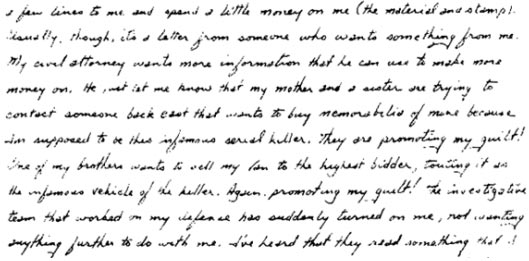 a few lines to me and spend a little money on me (the material and stamp).
Usually, though, its a letter from someone who wants something from me.
My civil attorney wants more information that he can use to make more
money on. He just let me know that my mother and a sister are trying to
contact someone back east that wants to buy memorabilia of mine because
Im supposed to be this infamous serial killer. They are promoting my guilt!
One of my brothers wants to sell my van to the highest bidder, touting it as
the infamous vehicle of the killer. Again, promoting my guilt! The investigative
team that worked on my defense has suddenly turned on me, not wanting
anything further to do with me. I've heard that they read something that I